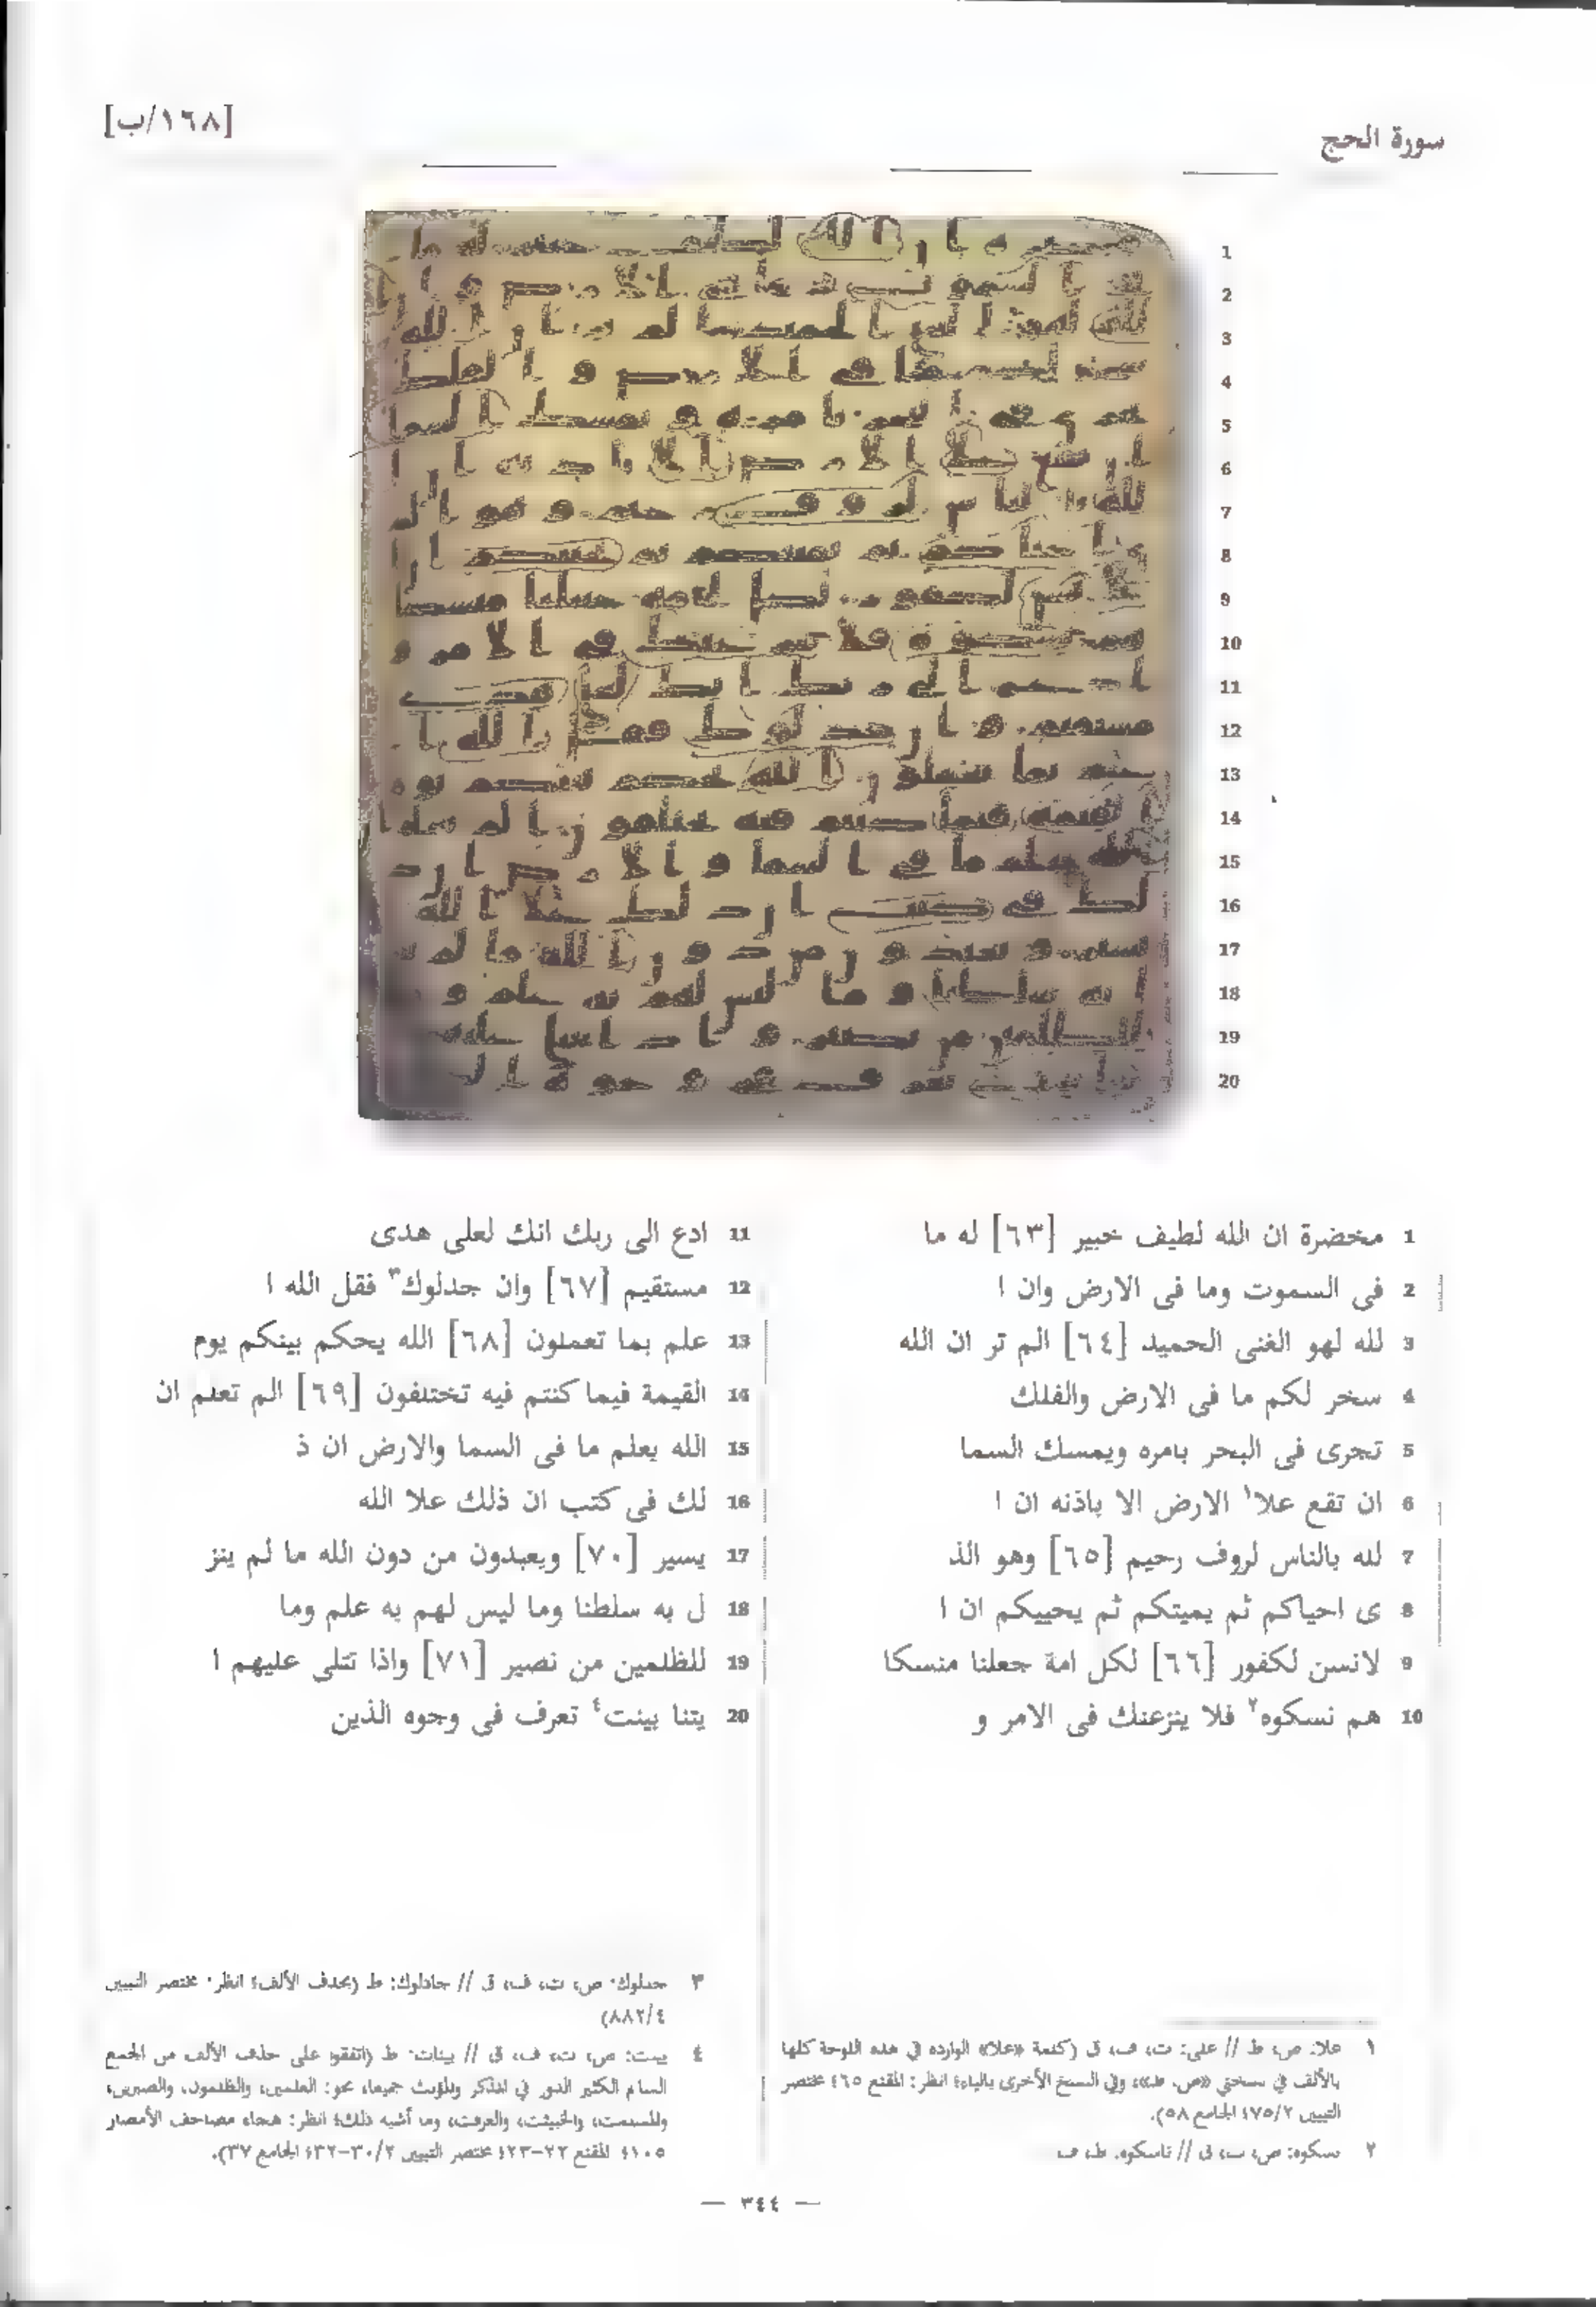 سورة الحج
[١٦٨/ب]
1 مخضرة ان الله لطيف خبير [٦٣] له ما
2 فى السموت وما فى الارض وان ا
3 لله لهو الغنى الحميد [٦٤] الم تر ان الله
4 سخر لكم ما فى الارض والفلك
5 تجرى فى البحر بامره ويمسك السما
6 ان تقع علا١ الارض الا باذنه ان ا
7 لله بالناس لروف رحيم [٦٥] وهو الذ
8 ى احياكم ثم يميتكم ثم يحييكم ان ا
9 لانسن لكفور [٦٦] لكل امة جعلنا منسكا
10 هم نسكوه٢ فلا ينزعنك فى الامر و
11 ادع الى ربك انك لعلى هدى
12 مستقيم [٦٧] وان جدلوك٣ فقل الله ا
13 علم بما تعملون [٦٨] الله يحكم بينكم يوم
14 القيمة فيما كنتم فيه تختلفون [٦٩] الم تعلم ان
15 الله يعلم ما فى السما والارض ان ذ
16 لك فى كتب ان ذلك علا الله
17 يسير [٧٠] ويعبدون من دون الله ما لم ينز
18 ل به سلطنا وما ليس لهم به علم وما
19 للظلمين من نصير [٧١] واذا تتلى عليهم ا
20 يتنا بينت٤ تعرف فى وجوه الذين
١ علا: ص، ط // على: ت، ف، ق (كلمة «علا» الواردة في هذه اللوحة كلها
بالألف في نسختي «ص، ط»، وفي النسخ الأخرى بالياء؛ انظر: المقنع ٦٥؛ مختصر
التبيين ٧٥/٢؛ الجامع ٥٨).
٢ نسكوه: ص، ت، ق // ناسكوه: ط، ف
٣ جدلوك: ص، ت، ف، ق // جادلوك: ط (بحذف الألف؛ انظر: مختصر التبيين
٨٨٢/٤)
٤ بينت: ص، ت، ف، ق // بينات: ط (اتفقوا على حذف الألف من الجمع
السالم الكثير الدور في المذكر والمؤنث جميعا، نحو: العلمين، والظلمون، والصبرين،
والمسلمت، والخبيثت، والغرفت، وما أشبه ذلك؛ انظر: هجاء مصاحف الأمصار
١٠٥؛ المقنع ٢٢–٢٣؛ مختصر التبيين ٣٠/٢–٣٢؛ الجامع ٣٧).
— ٣٤٤ —